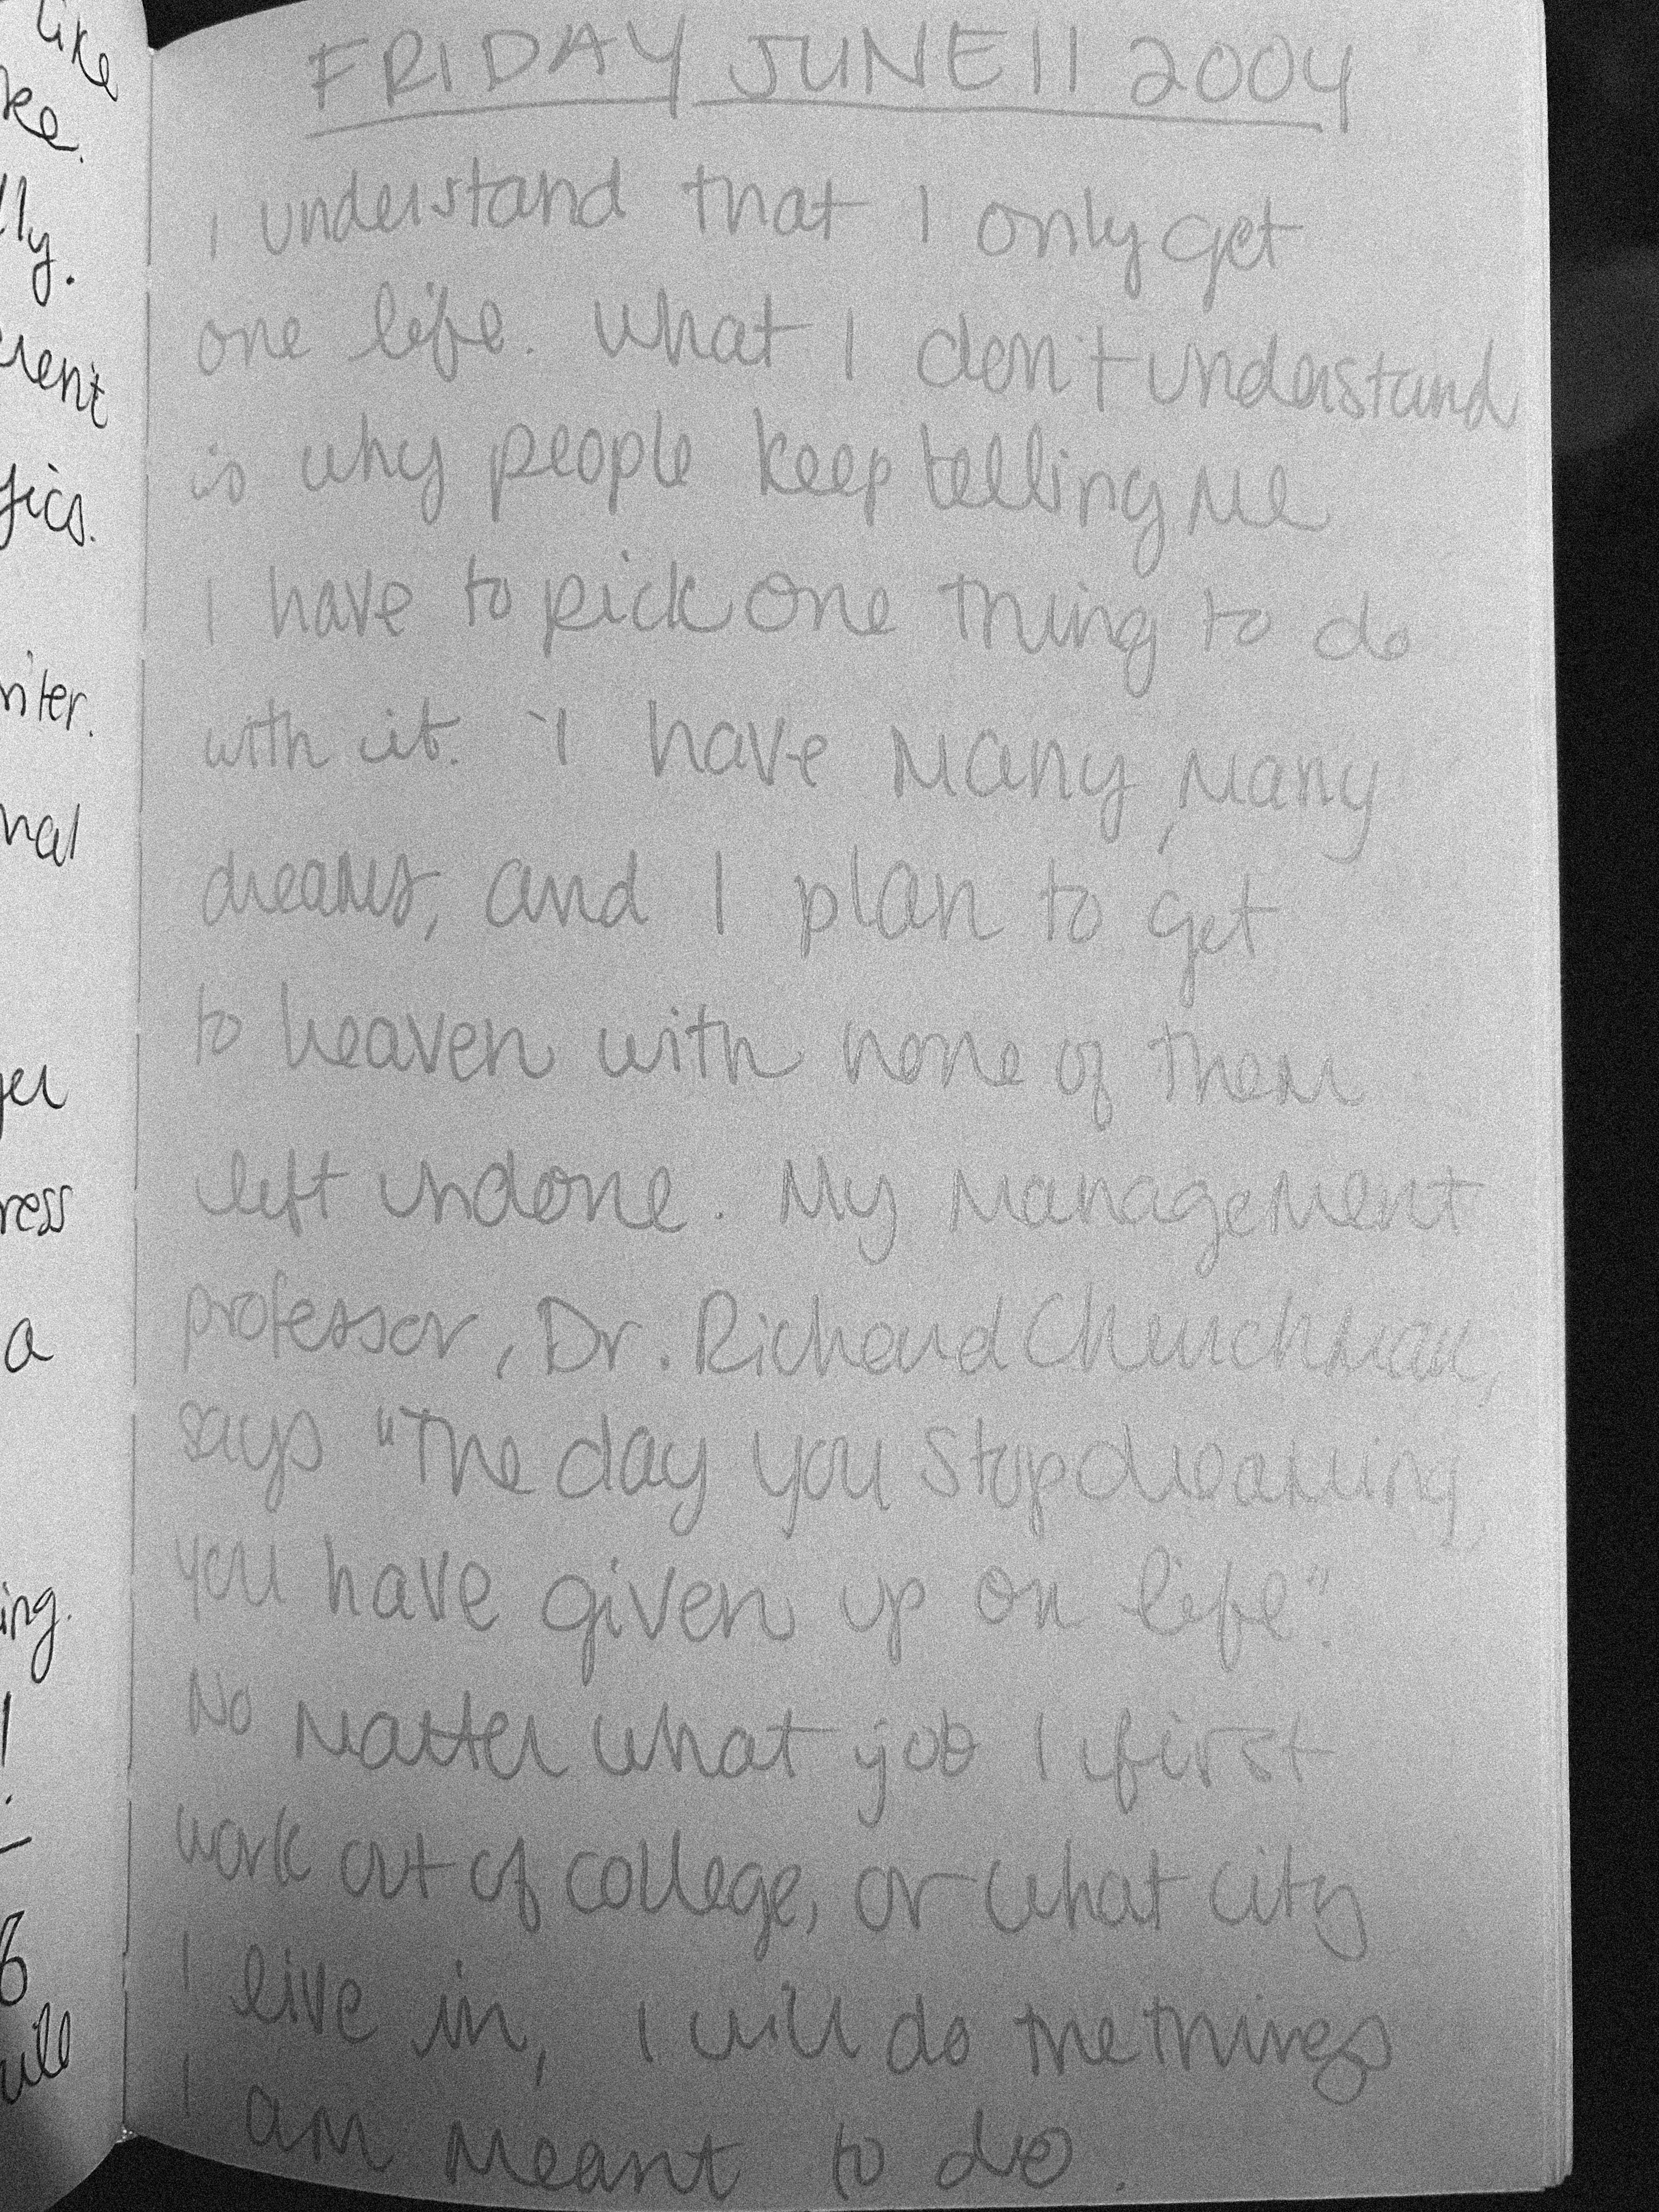 FRIDAY JUNE 11 2004
I understand that I only get
one life. What I don't understand
is why people keep telling me
I have to pick one thing to do
with it. I have many, many
dreams, and I plan to get
to heaven with none of them
left undone. My management
professor, Dr. Richard Churchman,
says "The day you stop dreaming,
you have given up on life".
No matter what job I first
work out of college, or what city
I live in, I will do the things
I am meant to do.
like
ke.
lly.
rent
gics.
riter.
nal
ger
ress
a
ing.